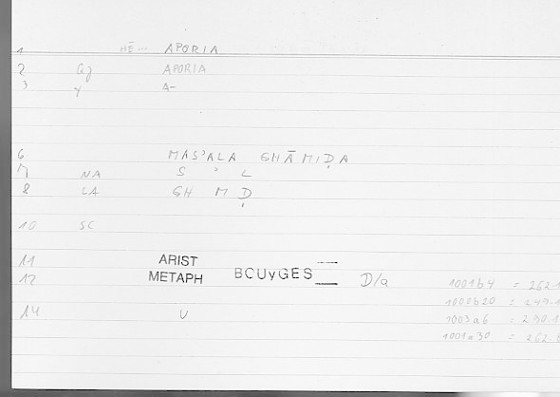 1 HĒ— APORIA
2 Gj APORIA
3 Y A-
6 MAS'ALA GHĀMIḌA
7 NA S ' L
8 LA GH M Ḍ
10 SC
11 ARIST
12 METAPH BCUyGES D/a 1001b4 = 262.1
1000b20 = 249.1
14 U 1003a6 = 290.1
1001a30 = 262.